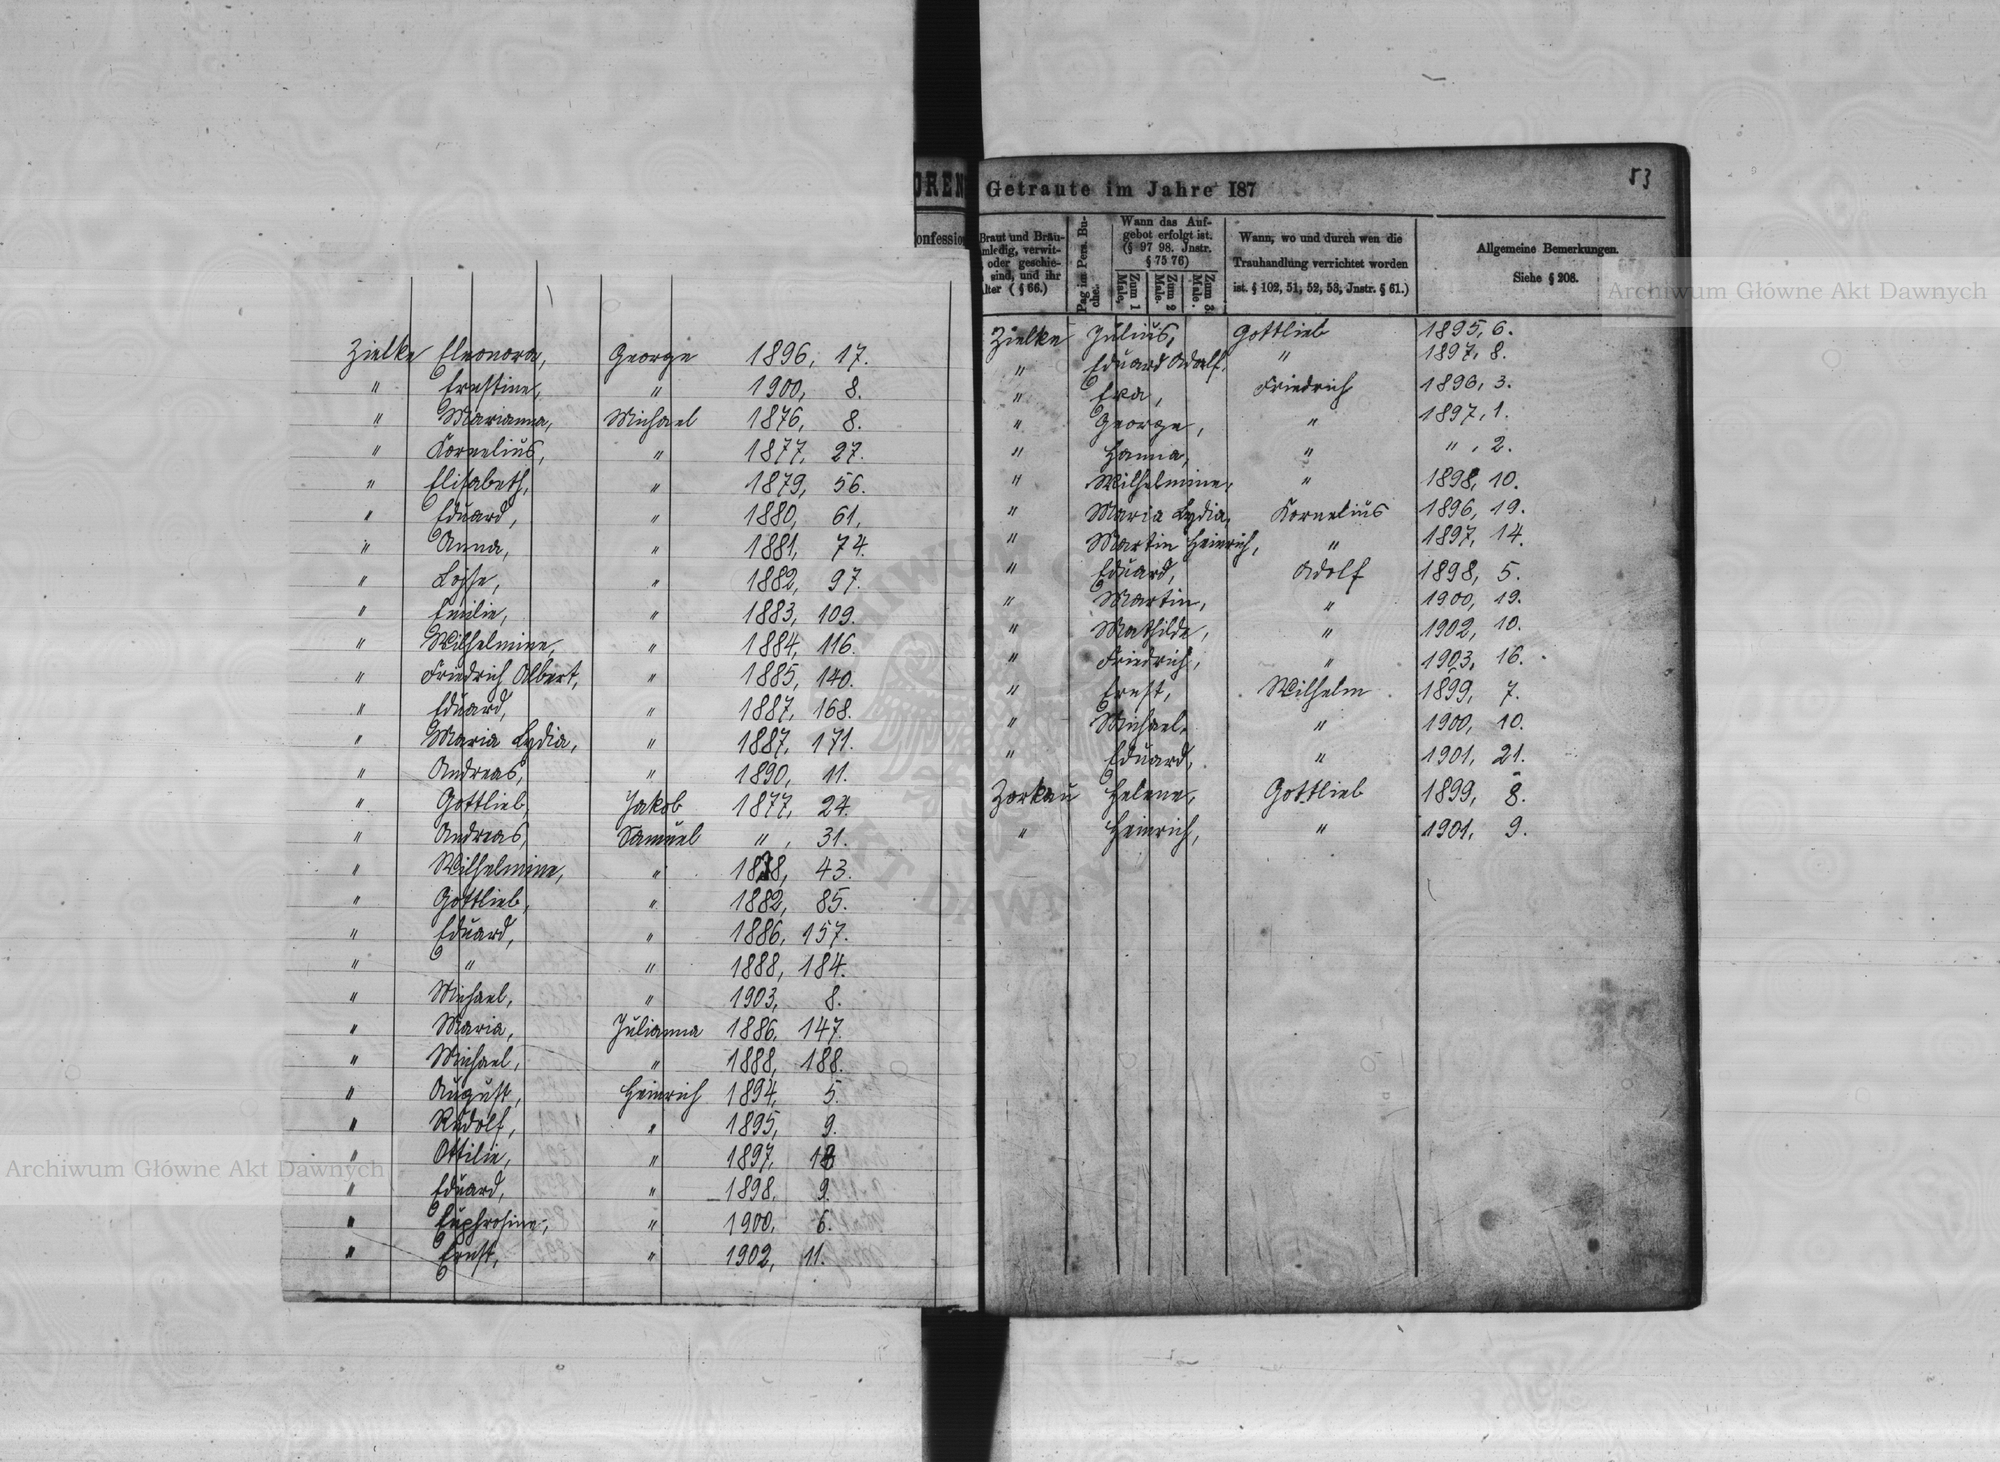 Zielke Eleonora, George 1896, 17.
" Ernstine, " 1900, 8.
" Marianna, Michael 1876, 8.
" Kornelius, " 1877, 27.
" Elisabeth, " 1879, 56.
" Eduard, " 1880, 61.
" Anna, " 1881, 74.
" " 1882, 97.
" Emilie, " 1883, 109.
" Wilhelmine, " 1884, 116.
" Friedrich Albert, " 1885, 140.
" Eduard, " 1887, 168.
" Maria Lydia, " 1887, 171.
" Andreas, " 1890, 11.
" Gottlieb, Jakob 1877, 24.
" Andreas, Samuel " , 31.
" Wilhelmine, " 1878, 43.
" Gottlieb, " 1882, 85.
" Eduard, " 1886, 157.
" " " 1888, 184.
" Michael, " 1903, 8.
" Maria, Julianna 1886, 147.
" Michael, " 1888, 188.
" August, Heinrich 1894, 5.
" Rudolf, " 1895, 9.
" Ottilie, " 1897,
" Eduard, " 1898, 9.
" Euphrosine, " 1900, 6.
" Ernst, " 1902, 11.
OREN
onfession
Getraute im Jahre 187
53
Braut und Bräu-
mledig, verwit-
oder geschie-
sind, und ihr
lter ( § 66.)
Pag im Pers. Bu-
che.
Wann das Auf-
gebot erfolgt ist.
(§ 97 98. Jnstr.
§ 75 76)
Zum 1 Male,
Zum 2 Male.
Zum 3 Male.
Wann, wo und durch wen die
Trauhandlung verrichtet worden
ist. § 102, 51, 52, 53, Jnstr. § 61.)
Allgemeine Bemerkungen.
Siehe § 206.
Zielke Julius, Gottlieb 1895, 6.
" Eduard Adolf, " 1897, 8.
" Eva, Friedrich 1896, 3.
" George, " 1897, 1.
" Hanna, " " , 2.
" Wilhelmine, " 1898, 10.
" Maria Lydia, Kornelius 1896, 19.
" Martin Heinrich, " 1897, 14.
" Eduard, Adolf 1898, 5.
" Martin, " 1900, 19.
" Mathilde, " 1902, 10.
" Friedrich, " 1903, 16.
" Ernst, Wilhelm 1899, 7.
" Michael, " 1900, 10.
" Eduard, " 1901, 21.
Zorkau Helene, Gottlieb 1899, 8.
" Heinrich, " 1901, 9.
Archiwum Główne Akt Dawnych
Archiwum Główne Akt Dawnych